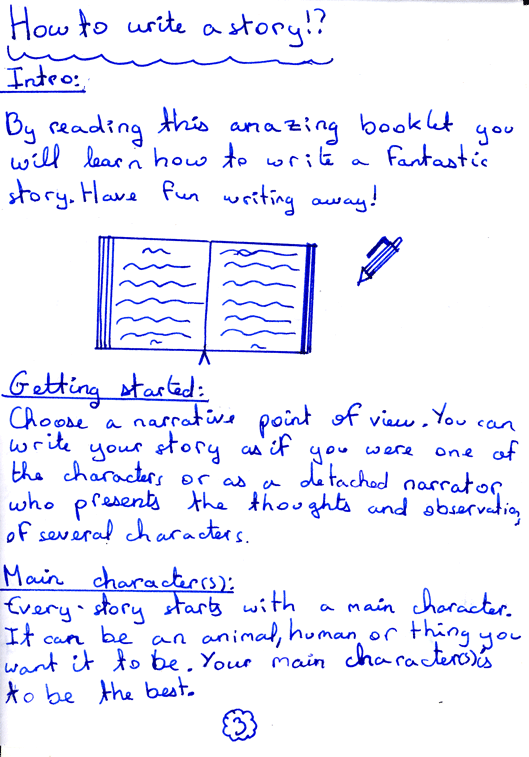 How to write a story!?
Intro:
By reading this amazing booklet you
will learn how to write a fantastic
story. Have fun writing away!
Getting started:
Choose a narrative point of view. You can
write your story as if you were one of
the characters or as a detached narrator
who presents the thoughts and observation
of several characters.
Main character(s):
Every story starts with a main character.
It can be an animal, human or thing you
want it to be. Your main character(s) is
to be the best.
3